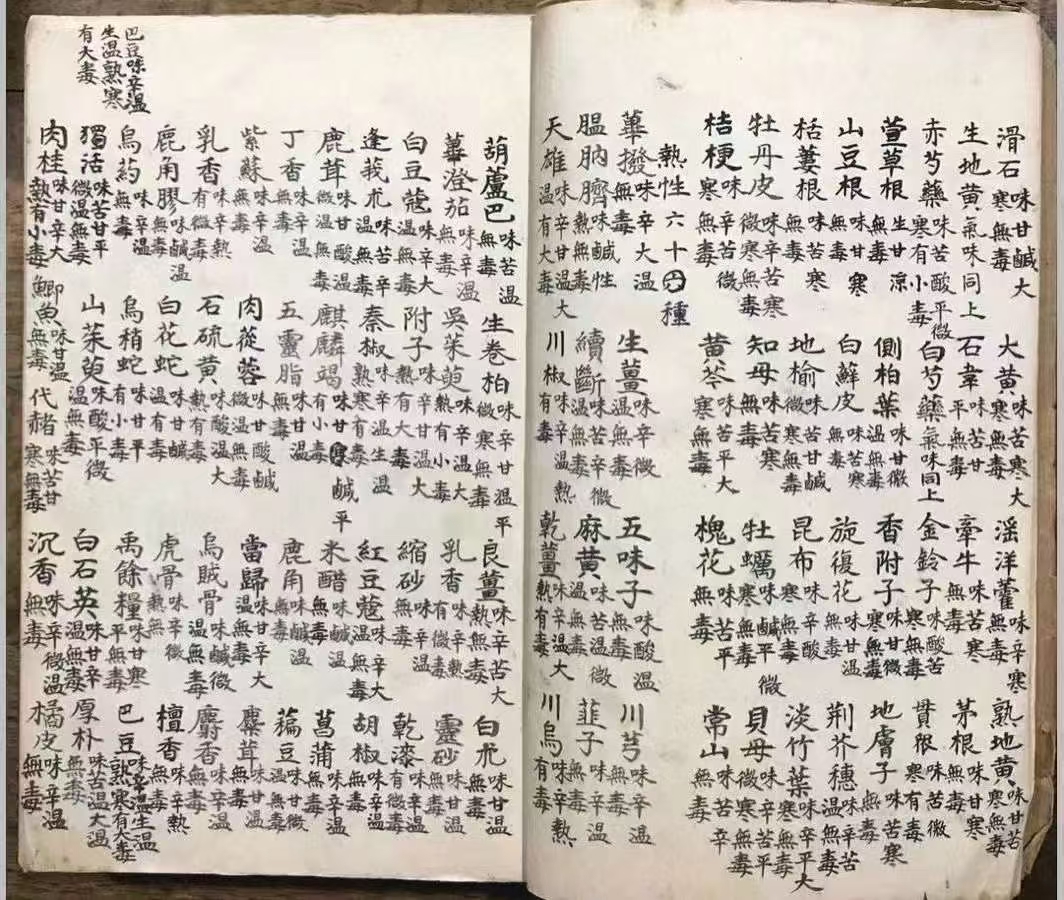 滑石味甘鹹大寒無毒 大黃味苦寒大寒無毒 淫洋藿味辛寒無毒 熟地黃味甘苦寒無毒
生地黃氣味同上 石韋味苦甘平無毒 牽牛味苦寒無毒 茅根味甘寒無毒
赤芍藥味苦酸平微寒有小毒 白芍藥氣味同上 金鈴子味酸苦寒無毒 貫眾味苦微寒有毒
萱草根生甘涼無毒 側柏葉味甘微溫無毒 香附子味甘微寒無毒 地膚子味苦寒無毒
山豆根味甘寒無毒 白鮮皮味苦寒無毒 旋復花味甘溫無毒 荆芥穗味辛苦溫無毒
栝蔞根味苦寒無毒 地榆味苦甘鹹微寒無毒 昆布味辛酸寒無毒 淡竹葉味辛平大寒無毒
牡丹皮味辛苦寒微寒無毒 知母味苦寒無毒 牡蠣味鹹平微寒無毒 貝母味辛苦平微寒無毒
桔梗味辛苦微寒無毒 黃芩味苦平寒無毒 槐花味苦平無毒 常山味苦辛無毒
熱性六十種
蓽撥味辛大溫無毒 生薑味辛微溫無毒 五味子味酸溫無毒 川芎味辛溫無毒
膃肭臍味鹹性熱無毒 續斷味苦辛微溫無毒 麻黃味苦溫微溫無毒 韮子味辛溫無毒
天雄味辛甘溫大溫有大毒 川椒味辛溫熱有毒 乾薑味辛溫大熱有毒 川烏味辛熱有毒
葫蘆巴味苦溫無毒 生卷柏味辛甘溫平微寒無毒 良薑味辛苦大熱無毒 白朮味甘溫無毒
蓽澄茄味辛溫無毒 吳茱萸味辛溫大熱有小毒 乳香味辛熱有微毒 靈砂味甘溫無毒
白豆蔻味辛大溫無毒 附子味辛甘溫大熱有大毒 縮砂味辛溫無毒 乾漆味辛溫有微毒
逢莪朮味苦辛溫無毒 秦椒味辛溫生溫熟寒有毒 紅豆蔻味辛大溫無毒 胡椒味辛大溫無毒
鹿茸味甘酸溫微溫無毒 麒麟竭味甘鹹平有小毒 米醋味鹹溫無毒 菖蒲味辛溫無毒
丁香味辛溫無毒 五靈脂味甘溫無毒 鹿角味鹹溫無毒 藊豆味甘微溫無毒
紫蘇味辛溫無毒 肉蓯蓉味甘酸鹹微溫無毒 當歸味甘辛大溫無毒 麋茸味甘溫無毒
乳香味辛熱有微毒 石硫黃味酸溫大熱有毒 烏賊骨味鹹微溫無毒 麝香味辛溫無毒
鹿角膠味甘鹹溫無毒 白花蛇味甘鹹溫有毒 虎骨味辛微熱無毒 檀香味辛熱無毒
烏药味辛溫無毒 烏稍蛇味甘平有小毒 禹餘糧味甘寒平無毒 巴豆味辛溫生溫熟寒有大毒
獨活味苦甘平微溫無毒 山茱萸味酸平微溫無毒 白石英味甘辛微溫無毒 厚朴味苦溫大溫無毒
肉桂味甘辛大熱有小毒 鯽魚味甘溫無毒 代赭味苦甘寒無毒 沉香味辛微溫無毒 橘皮味辛溫無毒
巴豆味辛溫
生溫熟寒
有大毒